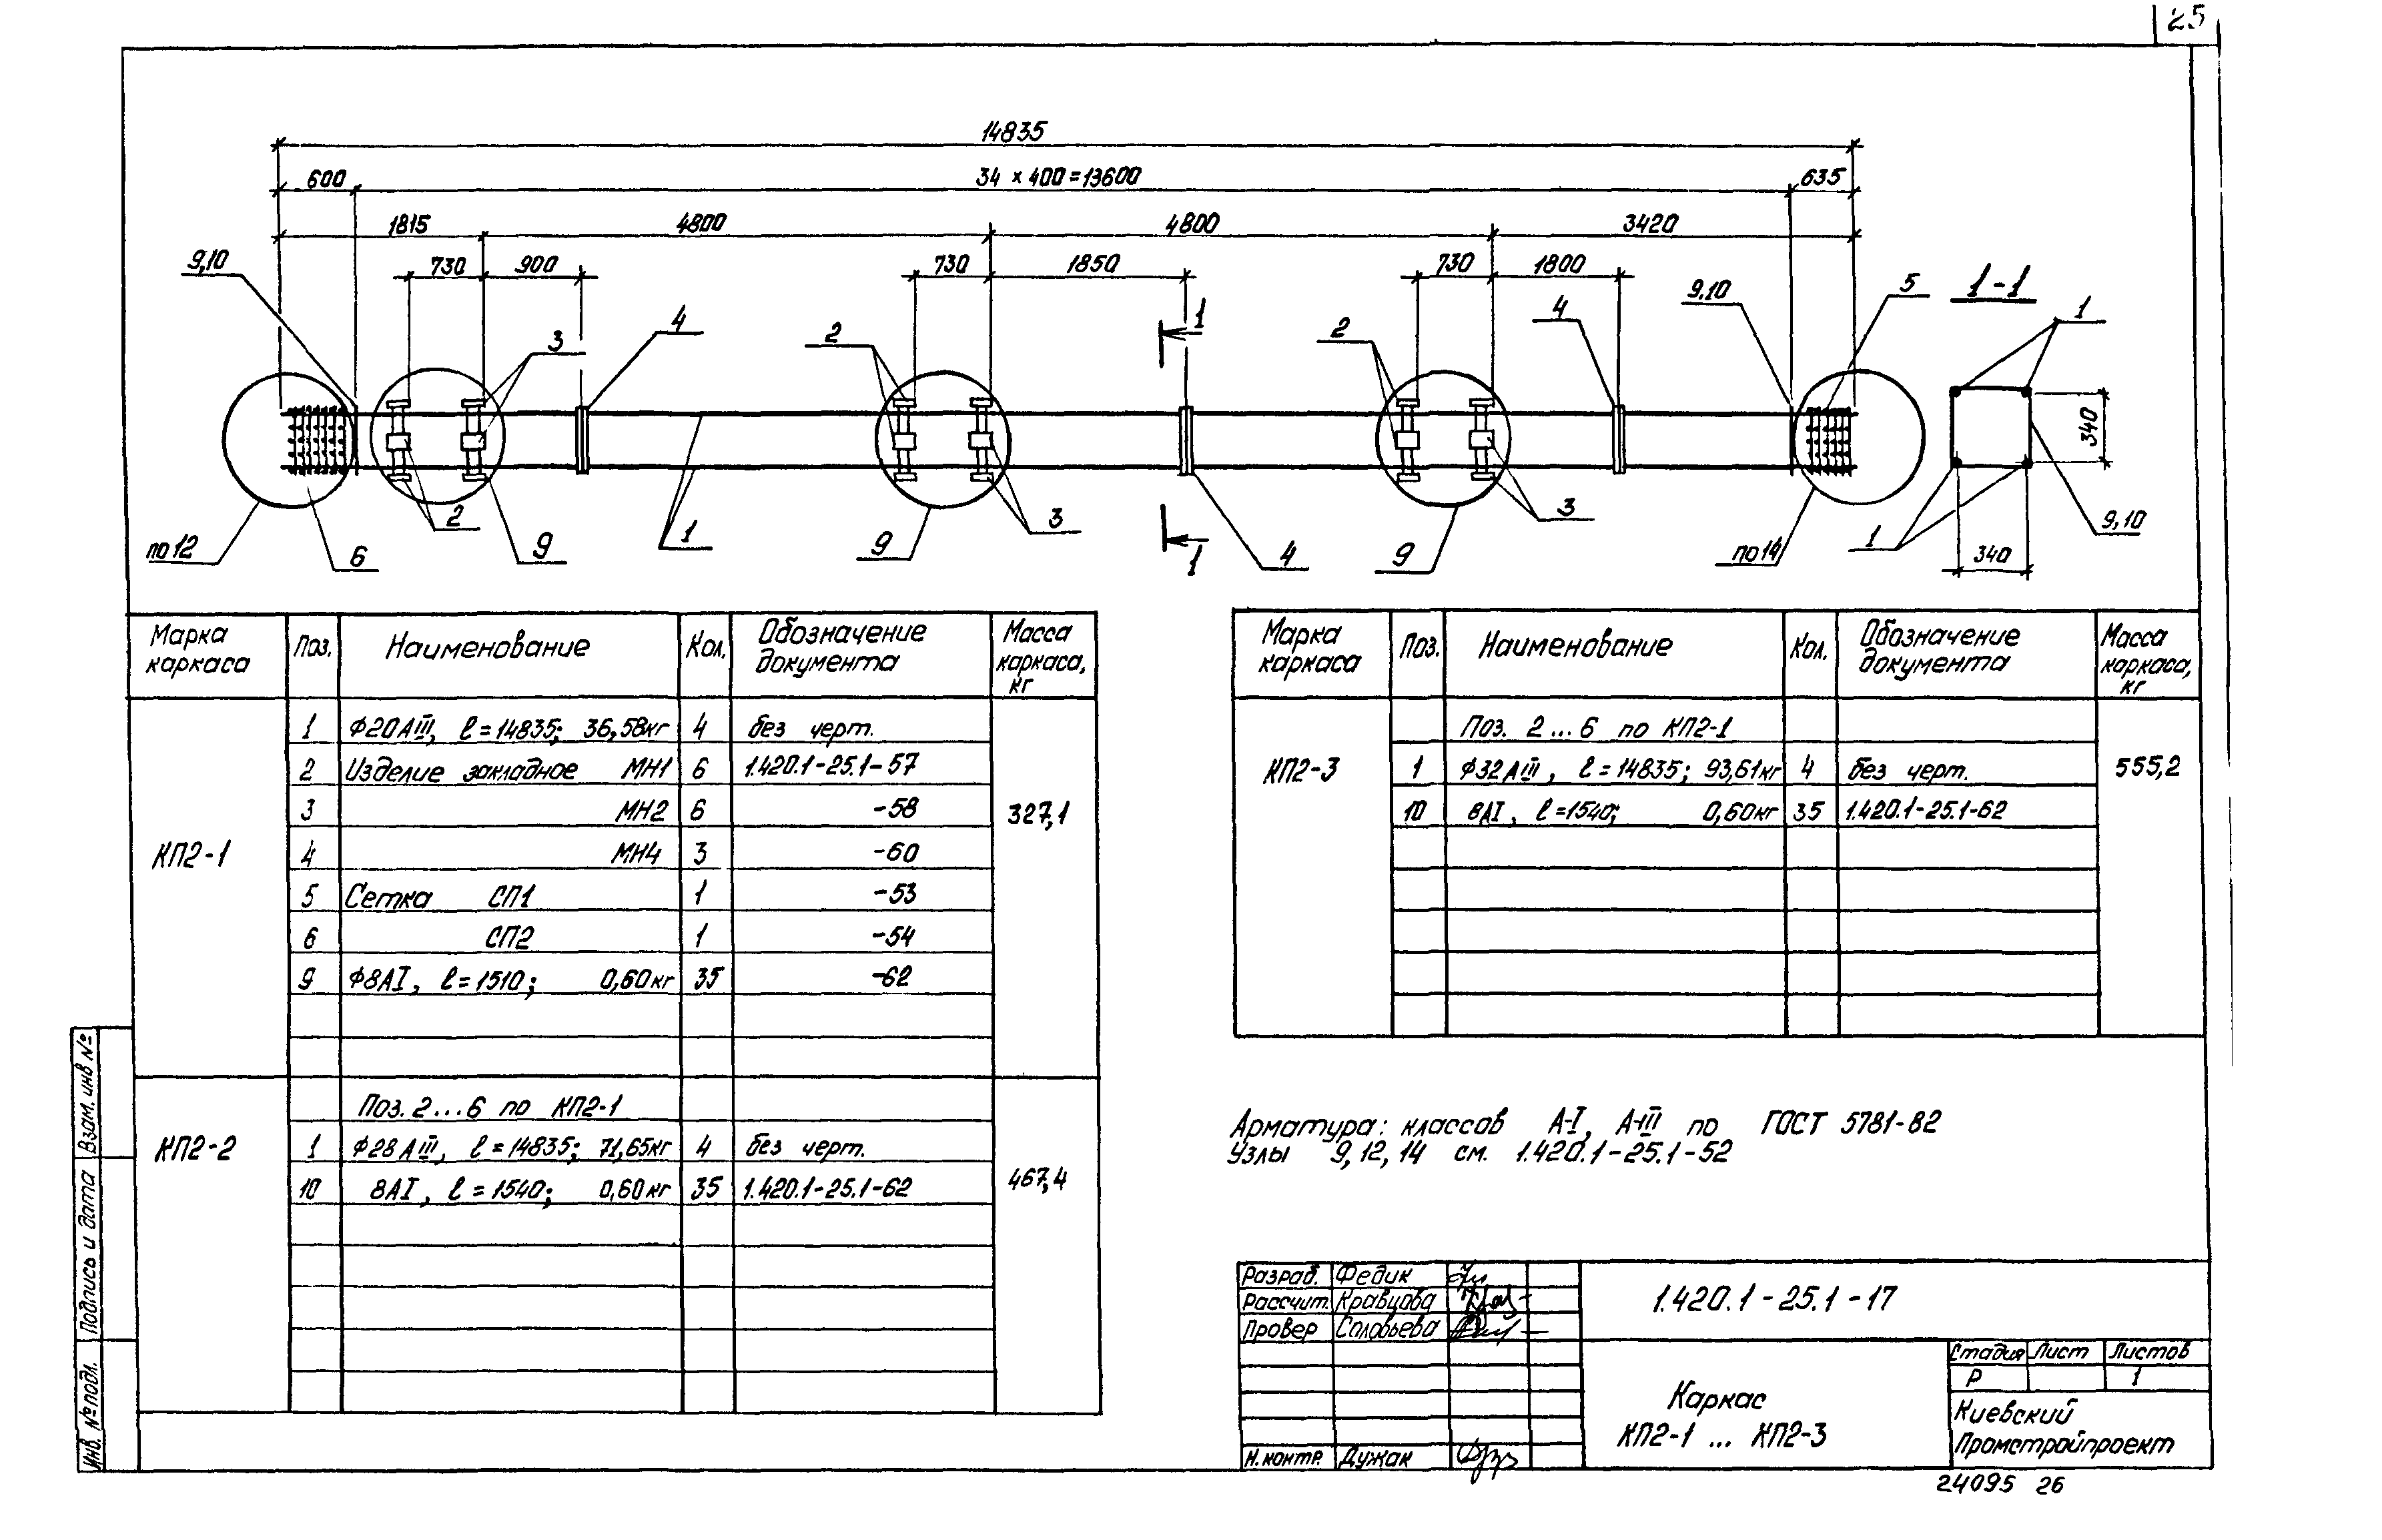 25
14835
600 34 × 400 = 13600 635
1815 4800 4800 3420
730 900 730 1850 730 1800
9,10 4 2 3 2 4 9,10 5
1
1-1
1
340
по 12 6 2 9 1 9 3 4 9 3 по 14 1 9,10
1
340
Марка каркаса Поз. Наименование Кол. Обозначение документа Масса каркаса, кг
КП2-1 327,1
1 Ф20АIII, ℓ = 14835; 36,58кг 4 без черт.
2 Изделие закладное МН1 6 1.420.1-25.1-57
3 МН2 6 -58
4 МН4 3 -60
5 Сетка СП1 1 -53
6 СП2 1 -54
9 Ф8АI, ℓ = 1510; 0,60кг 35 -62
КП2-2 467,4
Поз. 2...6 по КП2-1
1 Ф28АIII, ℓ = 14835; 71,65кг 4 без черт.
10 8АI, ℓ = 1540; 0,60кг 35 1.420.1-25.1-62
Марка каркаса Поз. Наименование Кол. Обозначение документа Масса каркаса, кг
КП2-3 555,2
Поз. 2...6 по КП2-1
1 Ф32АIII, ℓ = 14835; 93,61кг 4 без черт.
10 8АI, ℓ = 1540; 0,60кг 35 1.420.1-25.1-62
Арматура: классов А-I, А-III по ГОСТ 5781-82
Узлы 9, 12, 14 см. 1.420.1-25.1-52
Разраб. Федик
Рассчит. Кравцова
Провер Соловьева
Н.контр. Дужак
1.420.1-25.1-17
Каркас
КП2-1 ... КП2-3
Стадия Лист Листов
Р 1
Киевский
Промстройпроект
24095 26
Инв. № подл. Подпись и дата Взам. инв №